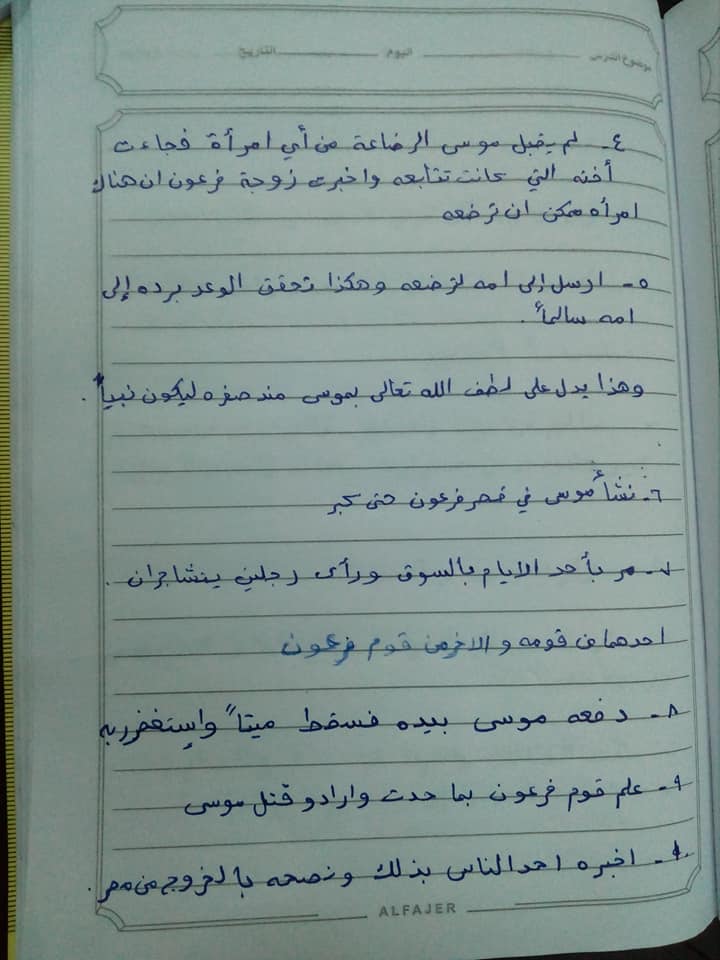 موضوع الدرس اليوم التاريخ
٤- لم يقبل موسى الرضاعة من أي امرأة فجاءت
أخته التي كانت تتابعه واخبرت زوجة فرعون ان هناك
امرأه ممكن ان ترضعه
٥- ارسل إلى امه لترضعه وهكذا تحقق الوعد برده إلى
امه سالماً.
وهذا يدل على لطف الله تعالى بموسى منذ صغره ليكون نبياً.
٦- نشأ موسى في قصر فرعون حتى كبر
٧- مر بأحد الايام بالسوق ورأى رجلين يتشاجران.
احدهما من قومه والاخر من قوم فرعون
٨- دفعه موسى بيده فسقط ميتاً واستغفر ربه
٩- علم قوم فرعون بما حدث وارادو قتل موسى
اخبره احد الناس بذلك ونصحه بالخروج من مصر.
ALFAJER